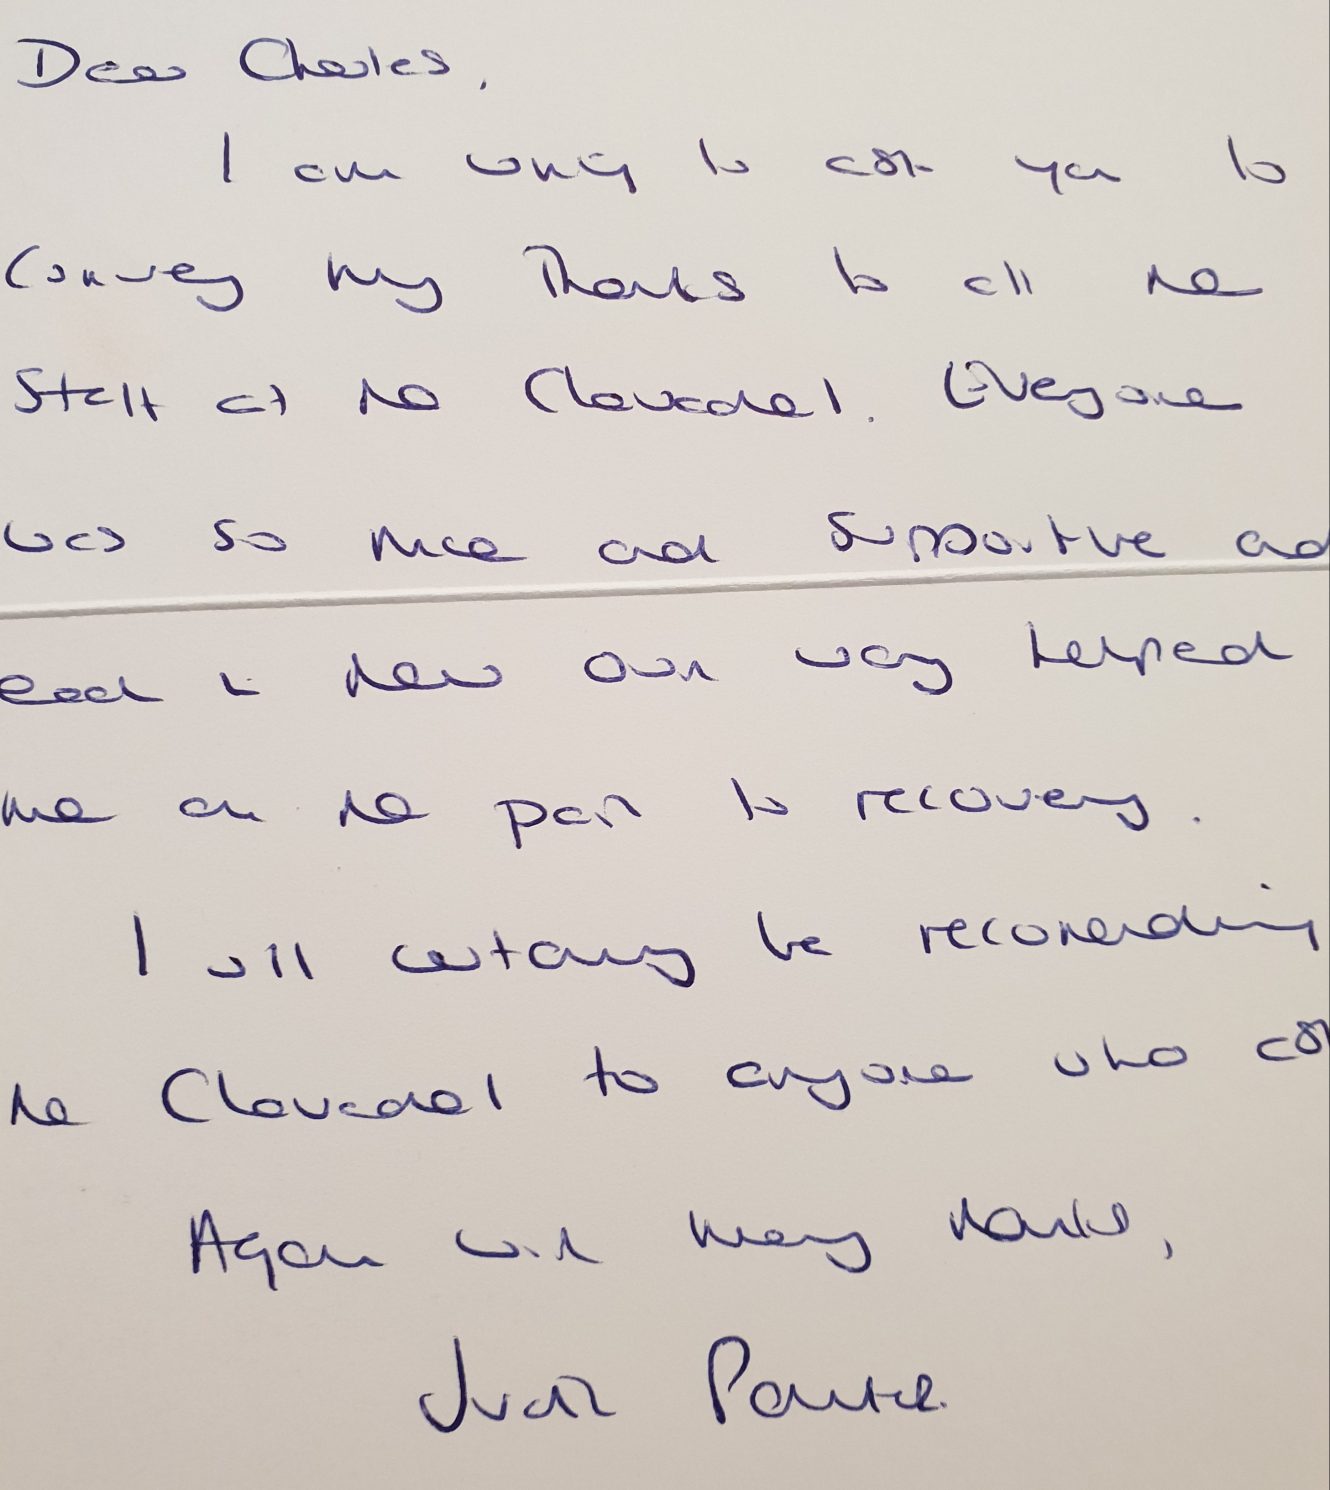 Dear Charles,
I am writing to ask you to
Convey my Thanks to all the
Staff at the Clavadel. Everyone
was so nice and supportive and
each in their own way helped
me on the path to recovery.
I will certainly be recomending
the Clavadel to anyone who
Again with many thanks,
Judith